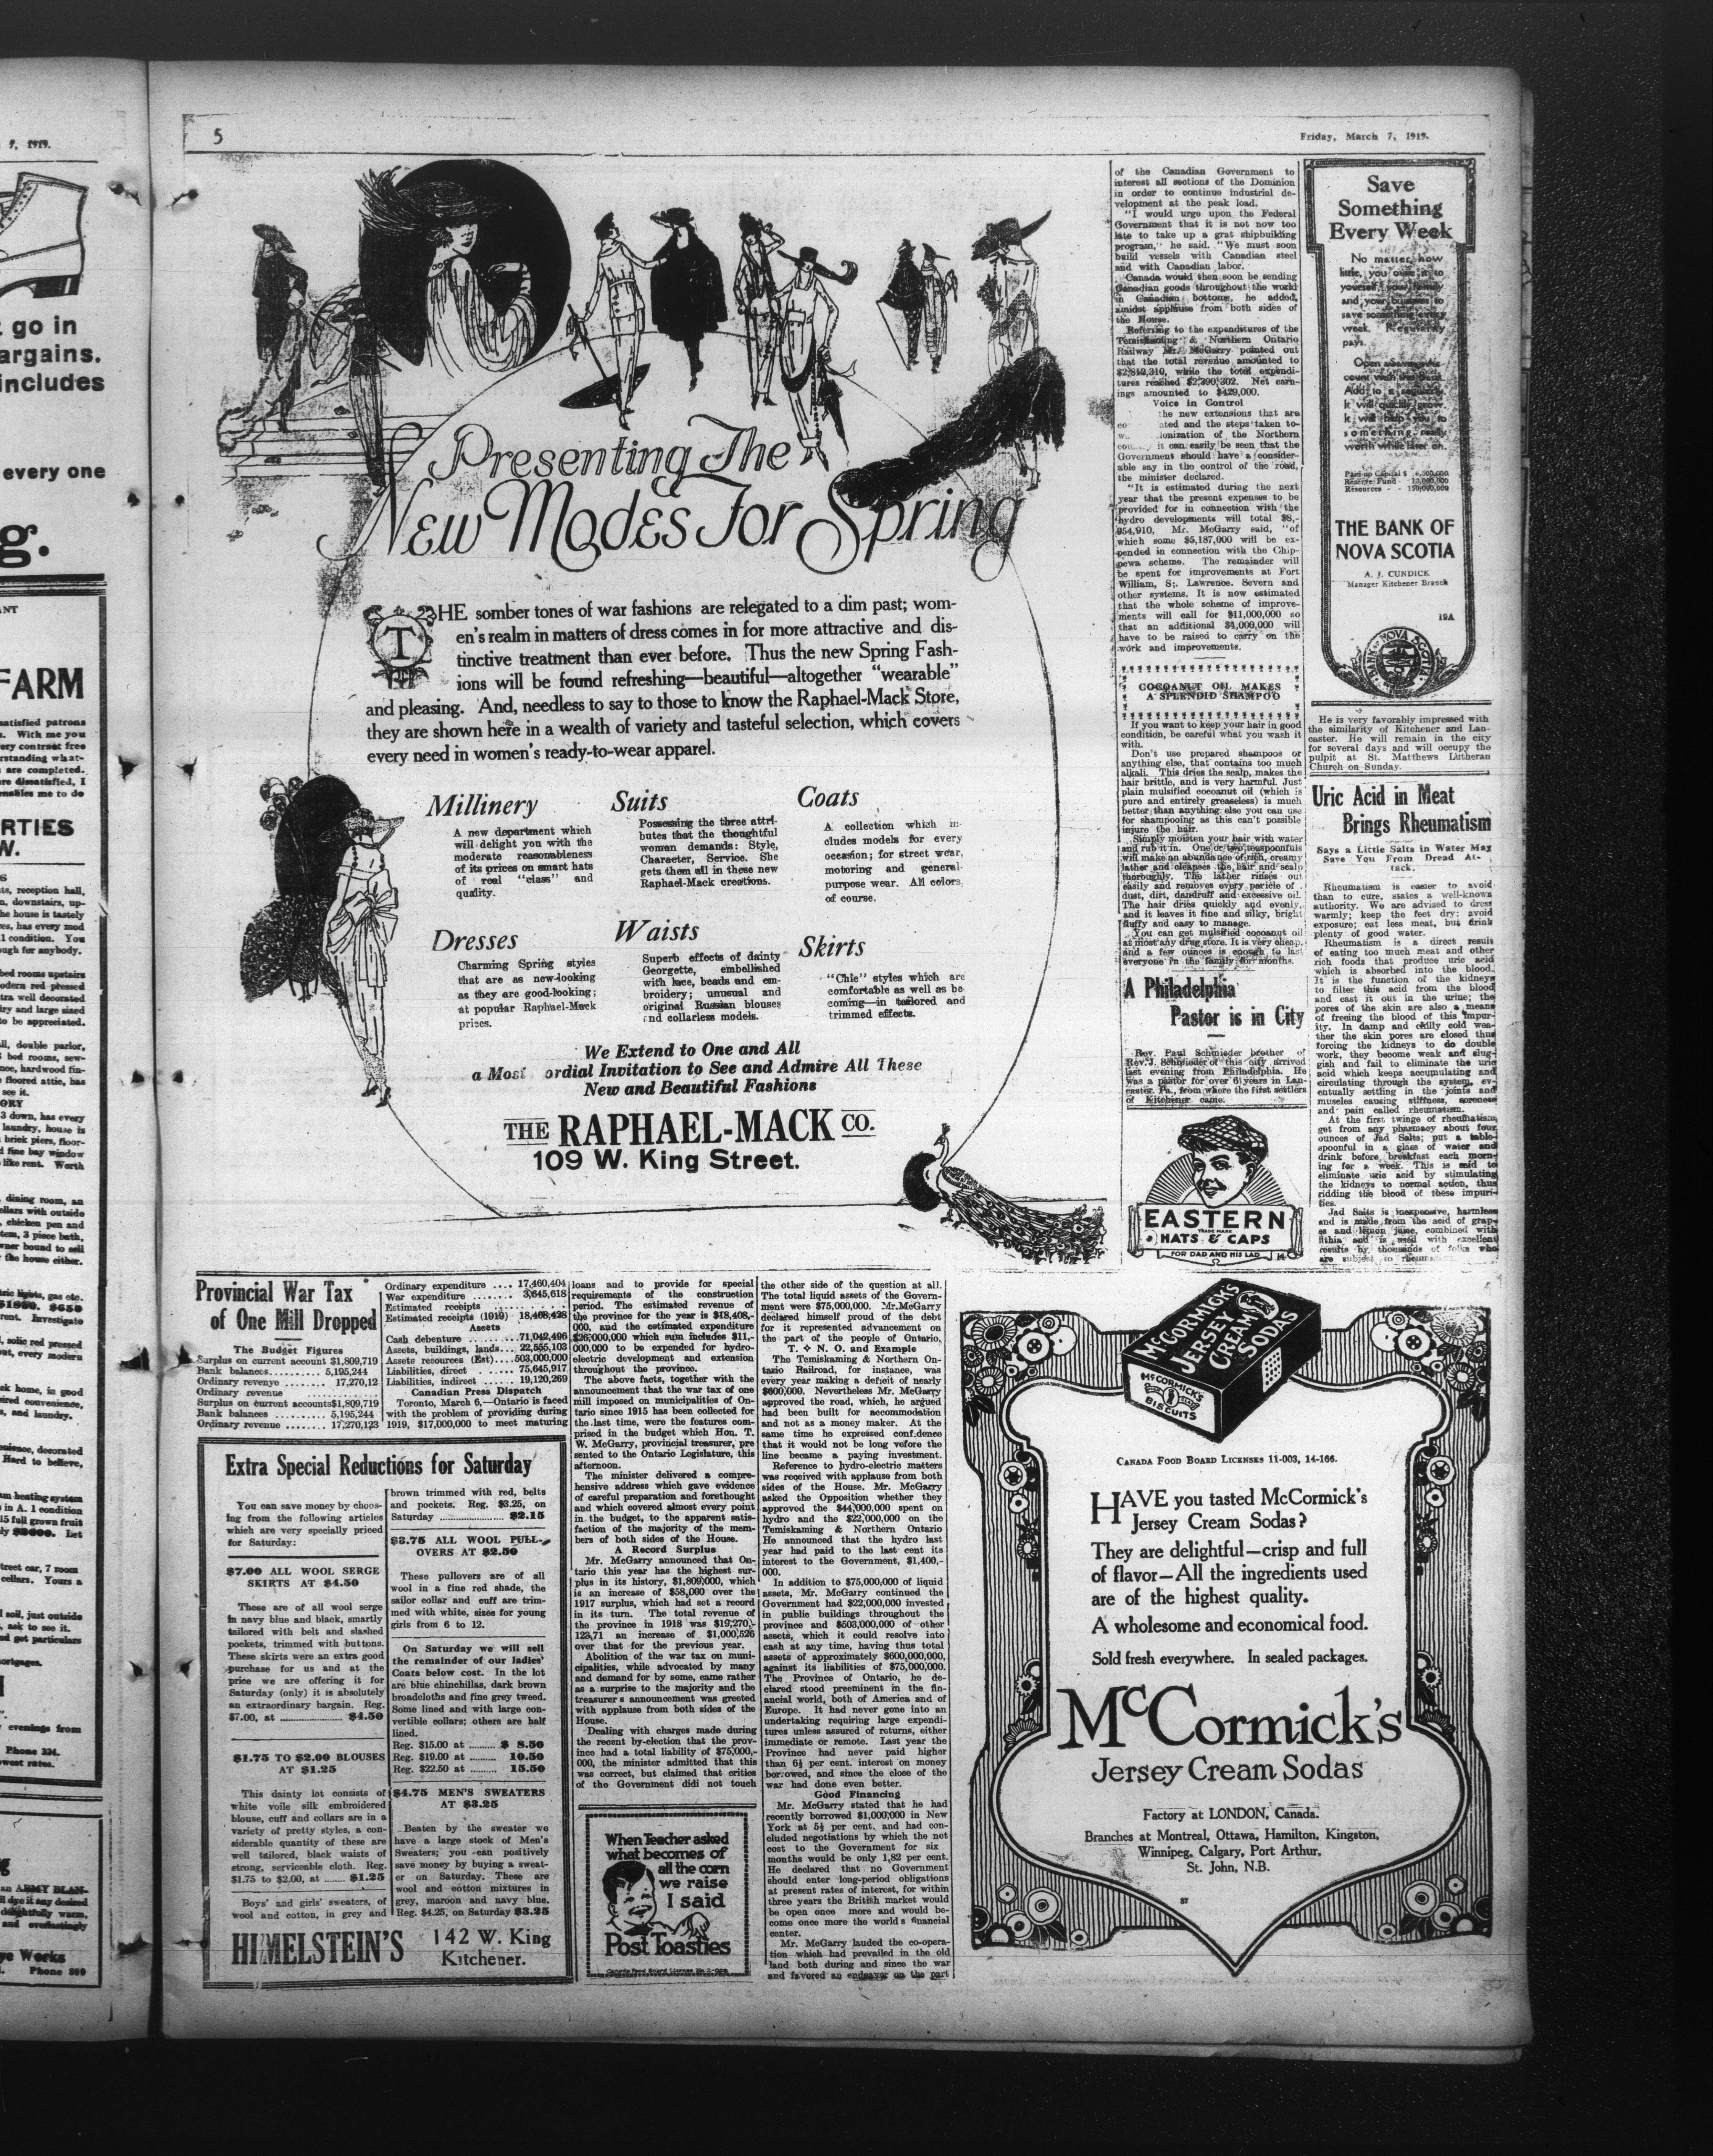 5
Friday, March 7, 1919.
Presenting The
New Modes For Spring
THE somber tones of war fashions are relegated to a dim past; wom-
en's realm in matters of dress comes in for more attractive and dis-
tinctive treatment than ever before. Thus the new Spring Fash-
ions will be found refreshing—beautiful—altogether "wearable"
and pleasing. And, needless to say to those to know the Raphael-Mack Store,
they are shown here in a wealth of variety and tasteful selection, which covers
every need in women's ready-to-wear apparel.
Millinery
A new department which
will delight you with the
moderate reasonableness
of its prices on smart hats
of real "class" and
quality.
Suits
Possessing the three attri-
butes that the thoughtful
women demands: Style,
Character, Service. She
gets them all in these new
Raphael-Mack creations.
Coats
A collection which in-
cludes models for every
occasion; for street wear,
motoring and general-
purpose wear. All colors,
of course.
Dresses
Charming Spring styles
that are as new-looking
as they are good-looking;
at popular Raphael-Mack
prices.
Waists
Superb effects of dainty
Georgette, embellished
with lace, beads and em-
broidery; unusual and
original Russian blouses
and collarless models.
Skirts
"Chic" styles which are
comfortable as well as be-
coming—in tailored and
trimmed effects.
We Extend to One and All
a Most ordial Invitation to See and Admire All These
New and Beautiful Fashions
THE RAPHAEL-MACK CO.
109 W. King Street.
of the Canadian Government to
interest all sections of the Dominion
in order to continue industrial de-
velopment at the peak load.
"I would urge upon the Federal
Government that it is not now too
late to take up a grat shipbuilding
program," he said. "We must soon
build vessels with Canadian steel
and with Canadian labor.
Canada would then soon be sending
Canadian goods throughout the world
in Canadian bottoms, he added,
amidst applause from both sides of
the House.
Referring to the expenditures of the
Temiskaming & Northern Ontario
Railway Mr. McGarry pointed out
that the total revenue amounted to
$2,819,310, while the total expendi-
tures reached $2,390,302. Net earn-
ings amounted to $429,000.
Voice in Control
the new extensions that are
ated and the steps taken to-
ionization of the Northern
it can easily be seen that the
Government should have a consider-
able say in the control of the road,
the minister declared.
"It is estimated during the next
year that the present expenses to be
provided for in connection with the
hydro developments will total $8,-
954,910, Mr. McGarry said, "of
which some $5,187,000 will be ex-
pended in connection with the Chip-
pewa scheme. The remainder will
be spent for improvements at Fort
William, St. Lawrence. Severn and
other systems. It is now estimated
that the whole scheme of improve-
ments will call for $11,000,000 so
that an additional $4,000,000 will
have to be raised to carry on the
work and improvements.
COCOANUT OIL MAKES
A SPLENDID SHAMPOO
If you want to keep your hair in good
condition, be careful what you wash it
with.
Don't use prepared shampoos or
anything else, that contains too much
alkali. This dries the scalp, makes the
hair brittle, and is very harmful. Just
plain mulsified cocoanut oil (which is
pure and entirely greaseless) is much
better than anything else you can use
for shampooing as this can't possible
injure the hair.
Simply moisten your hair with water
and rub it in. One or two teaspoonfuls
will make an abundance of rich, creamy
lather and cleanses the hair and scalp
thoroughly. The lather rinses out
easily and removes every paricle of
dust, dirt, dandruff and excessive oil.
The hair dries quickly and evenly,
and it leaves it fine and silky, bright
fluffy and easy to manage.
You can get mulsified cocoanut oil
at most any drug store. It is very cheap,
and a few ounces is enough to last
everyone in the family for months.
A Philadelphia
Pastor is in City
Rev. Paul Schmieder brother of
Rev. J. Schmieder of this city arrived
last evening from Philadelphia. He
was a pastor for over 6½ years in Lan-
caster, Pa., from where the first settlers
of Kitchener came.
EASTERN
TRADE MARK
HATS & CAPS
FOR DAD AND HIS LAD
Save
Something
Every Week
No matter how
little, you owe it to
yourself, your family
and your business to
save something every
week. Regularity
pays.
Open a savings ac-
count with this Bank.
Add to it regularly.
It will quickly grow.
It will help you to
something really
worth while later on.
Paid-up Capital $ 6,500,000
Reserve Fund - 12,000,000
Resources - - 150,000,000
THE BANK OF
NOVA SCOTIA
A. J. CUNDICK
Manager Kitchener Branch
19A
BANK OF NOVA SCOTIA
He is very favorably impressed with
the similarity of Kitchener and Lan-
caster. He will remain in the city
for several days and will occupy the
pulpit at St. Matthews Lutheran
Church on Sunday.
Uric Acid in Meat
Brings Rheumatism
Says a Little Salts in Water May
Save You From Dread At-
tack.
Rheumatism is easier to avoid
than to cure, states a well-known
authority. We are advised to dress
warmly; keep the feet dry; avoid
exposure; eat less meat, but drink
plenty of good water.
Rheumatism is a direct result
of eating too much meat and other
rich foods that produce uric acid
which is absorbed into the blood.
It is the function of the kidneys
to filter this acid from the blood
and cast it out in the urine; the
pores of the skin are also a means
of freeing the blood of this impur-
ity. In damp and chilly cold wea-
ther the skin pores are closed thus
forcing the kidneys to do double
work, they become weak and slug-
gish and fail to eliminate the uric
acid which keeps accumulating and
circulating through the system, ev-
entually settling in the joints and
muscles causing stiffness, soreness
and pain called rheumatism.
At the first twinge of rheumatism
get from any pharmacy about four
ounces of Jad Salts; put a table-
spoonful in a glass of water and
drink before breakfast each morn-
ing for a week. This is said to
eliminate uric acid by stimulating
the kidneys to normal action, thus
ridding the blood of these impuri-
ties.
Jad Salts is inexpensive, harmless
and is made from the acid of grap-
es and lemon juice, combined with
lithia and is used with excellent
results by thousands of folks who
are subject to
Provincial War Tax
of One Mill Dropped
The Budget Figures
Surplus on current account $1,809,719
Bank balances.......... 5,195,244
Ordinary revenye ........ 17,270,12
Ordinary revenue
Surplus on current account$1,809,719
Bank balances .......... 5,195,244
Ordinary revenue ........ 17,270,123
Ordinary expenditure .... 17,460,404
War expenditure ........ 3,645,618
Estimated receipts ........
Estimated receipts (1919) 18,408,428
Assets
Cash debenture ........71,042,496
Assets, buildings, lands... 22,555,103
Assets resources (Est)....503,000,000
Liabilities, direct ...... 75,645,917
Liabilities, indirect ...... 19,120,269
Canadian Press Dispatch
Toronto, March 6,—Ontario is faced
with the problem of providing during
1919, $17,000,000 to meet maturing
loans and to provide for special
requirements of the construction
period. The estimated revenue of
the province for the year is $18,408,-
000, and the estimated expenditure
$26,000,000 which sum includes $11,-
000,000 to be expended for hydro-
electric development and extension
throughout the province.
The above facts, together with the
announcement that the war tax of one
mill imposed on municipalities of On-
tario since 1915 has been collected for
the last time, were the features com-
prised in the budget which Hon. T.
W. McGarry, provincial treasurer, pre
sented to the Ontario Legislature, this
afternoon.
The minister delivered a compre-
hensive address which gave evidence
of careful preparation and forethought
and which covered almost every point
in the budget, to the apparent satis-
faction of the majority of the mem-
bers of both sides of the House.
A Record Surplus
Mr. McGarry announced that On-
tario this year has the highest sur-
plus in its history, $1,809,000, which
is an increase of $58,000 over the
1917 surplus, which had set a record
in its turn. The total revenue of
the province in 1918 was $19,270,-
123,71 an increase of $1,000,526
over that for the previous year.
Abolition of the war tax on muni-
cipalities, while advocated by many
and demand for by some, came rather
as a surprise to the majority and the
treasurer's announcement was greeted
with applause from both sides of the
House.
Dealing with charges made during
the recent by-election that the prov-
ince had a total liability of $75,000,-
000, the minister admitted that this
was correct, but claimed that critics
of the Government didi not touch
the other side of the question at all.
The total liquid assets of the Govern-
ment were $75,000,000. Mr.McGarry
declared himself proud of the debt
for it represented advancement on
the part of the people of Ontario,
T. & N. O. and Example
The Temiskaming & Northern On-
tario Railroad, for instance, was
every year making a deficit of nearly
$600,000. Nevertheless Mr. McGarry
approved the road, which, he argued
had been built for accommodation
and not as a money maker. At the
same time he expressed confidence
that it would not be long vefore the
line became a paying investment.
Reference to hydro-electric matters
was received with applause from both
sides of the House. Mr. McGarry
asked the Opposition whether they
approved the $44,000,000 spent on
hydro and the $22,000,000 on the
Temiskaming & Northern Ontario
He announced that the hydro last
year had paid to the last cent its
interest to the Government, $1,400,-
000.
In addition to $75,000,000 of liquid
assets, Mr. McGarry continued the
Government had $22,000,000 invested
in public buildings throughout the
province and $503,000,000 of other
assets, which it could resolve into
cash at any time, having thus total
assets of approximately $600,000,000,
against its liabilities of $75,000,000.
The Province of Ontario, he de-
clared stood preeminent in the fin-
ancial world, both of America and of
Europe. It had never gone into an
undertaking requiring large expendi-
tures unless assured of returns, either
immediate or remote. Last year the
Province had never paid higher
than 6½ per cent. interest on money
borrowed, and since the close of the
war had done even better.
Good Financing
Mr. McGarry stated that he had
recently borrowed $1,000,000 in New
York at 5½ per cent. and had con-
cluded negotiations by which the net
cost to the Government for six
months would be only 1,82 per cent.
He declared that no Government
should enter long-period obligations
at present rates of interest, for within
three years the British market would
be open once more and would be-
come once more the world s financial
center.
Mr. McGarry lauded the co-opera-
tion which had prevailed in the old
land both during and since the war
and favored an endeavor on the part
Extra Special Reductions for Saturday
You can save money by choos-
ing from the following articles
which are very specially priced
for Saturday:
$7.00 ALL WOOL SERGE
SKIRTS AT $4.50
These are of all wool serge
in navy blue and black, smartly
tailored with belt and slashed
pockets, trimmed with buttons.
These skirts were an extra good
purchase for us and at the
price we are offering it for
Saturday (only) it is absolutely
an extraordinary bargain. Reg.
$7.00, at .................. $4.50
$1.75 TO $2.00 BLOUSES
AT $1.25
This dainty lot consists of
white voile silk embroidered
blouse, cuff and collars are in a
variety of pretty styles, a con-
siderable quantity of these are
well tailored, black waists of
strong, serviceable cloth. Reg.
$1.75 to $2.00, at ...... $1.25
Boys' and girls' sweaters, of
wool and cotton, in grey and
brown trimmed with red, belts
and pockets. Reg. $3.25, on
Saturday .................. $2.15
$3.75 ALL WOOL PULL-
OVERS AT $2.50
These pullovers are of all
wool in a fine red shade, the
sailor collar and cuff are trim-
med with white, sizes for young
girls from 6 to 12.
On Saturday we will sell
the remainder of our ladies'
Coats below cost. In the lot
are blue chinchillas, dark brown
broadcloths and fine grey tweed.
Some lined and with large con-
vertible collars; others are half
lined.
Reg. $15.00 at ......... $ 8.50
Reg. $19.00 at ......... 10.50
Reg. $22.50 at ......... 15.50
$4.75 MEN'S SWEATERS
AT $3.25
Beaten by the sweater we
have a large stock of Men's
Sweaters; you can positively
save money by buying a sweat-
er on Saturday. These are
wool and cotton mixtures in
grey, maroon and navy blue.
Reg. $4.25, on Saturday $3.25
HIMMELSTEIN'S
142 W. King
Kitchener.
When Teacher asked
what becomes of
all the corn
we raise
I said
Post Toasties
Canada Food Board License No.
McCORMICK'S
JERSEY
CREAM
SODAS
McCORMICK'S
BISCUITS
CANADA FOOD BOARD LICENSES 11-003, 14-166.
HAVE you tasted McCormick's
Jersey Cream Sodas?
They are delightful—crisp and full
of flavor—All the ingredients used
are of the highest quality.
A wholesome and economical food.
Sold fresh everywhere. In sealed packages.
McCormick's
Jersey Cream Sodas
Factory at LONDON, Canada.
Branches at Montreal, Ottawa, Hamilton, Kingston,
Winnipeg, Calgary, Port Arthur,
St. John, N.B.
37
7, 1919.
go in
argains.
includes
every one
g.
ANT
FARM
satisfied patrons
With me you
ery contract free
rstanding what-
are completed.
re dissatisfied, I
enables me to do
RTIES
W.